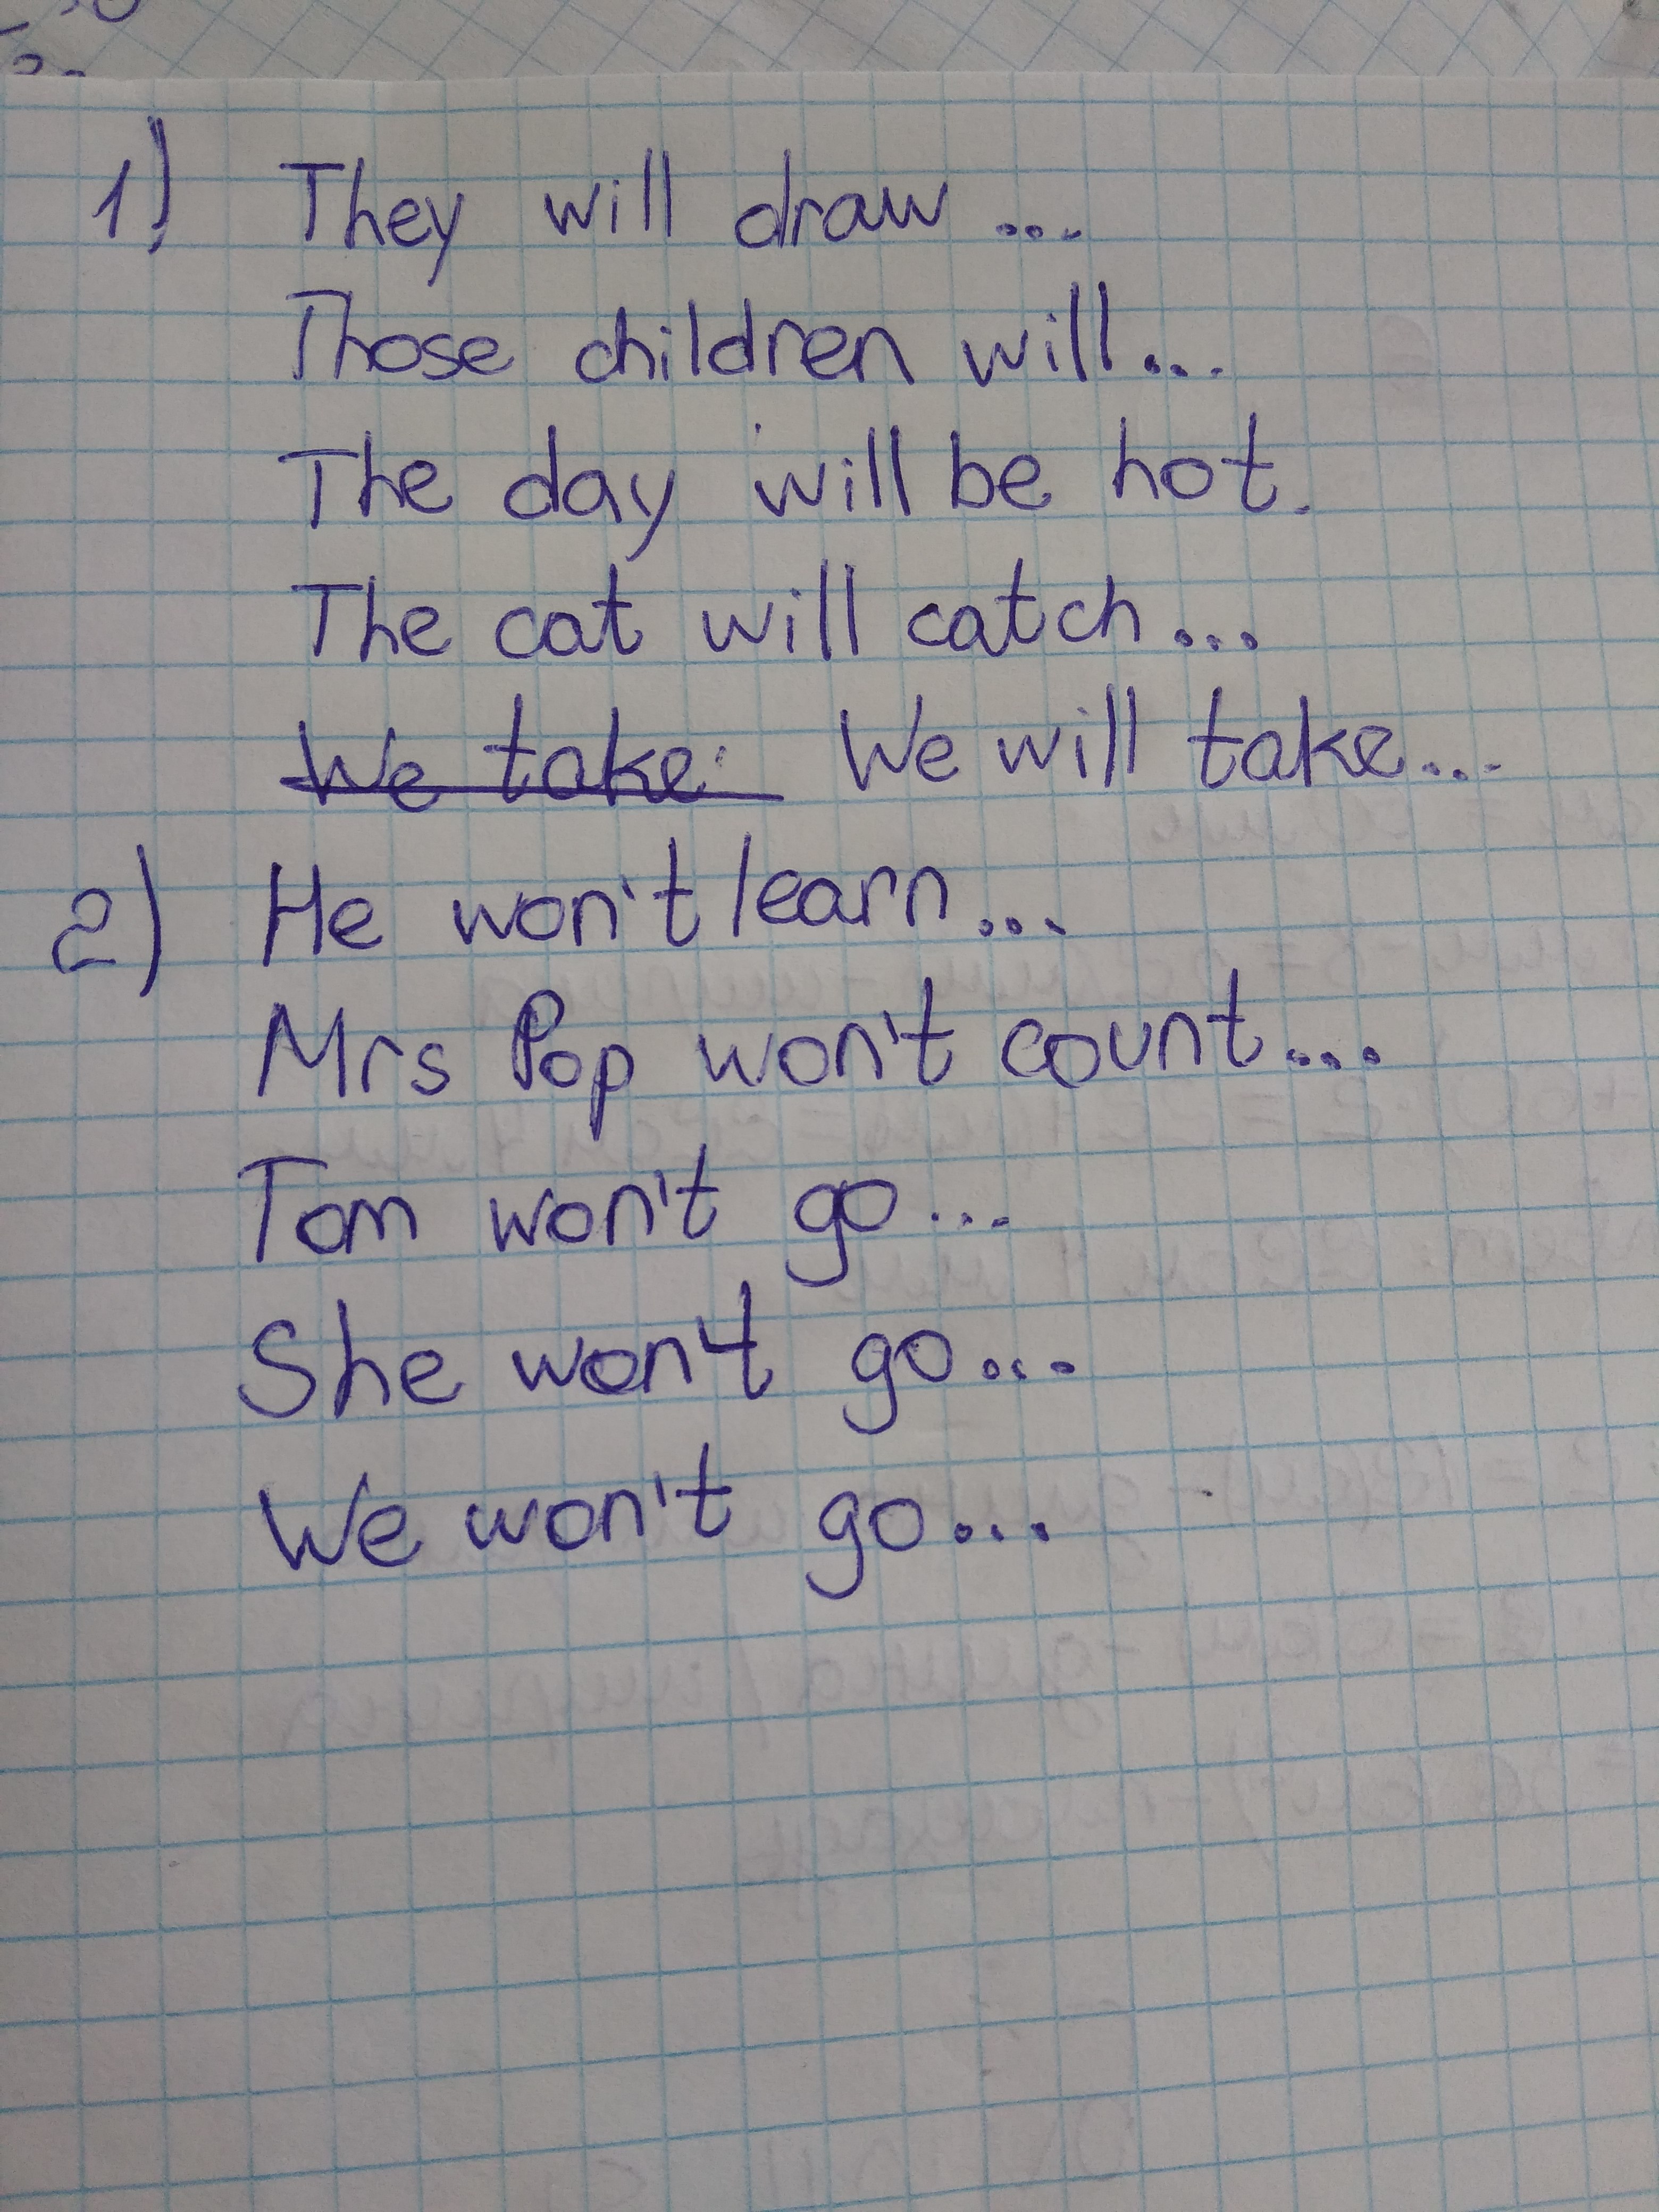 1) They will draw ...
Those children will...
The day will be hot.
The cat will catch...
We take We will take...
2) He won't learn...
Mrs Pop won't count...
Tom won't go...
She won't go...
We won't go...